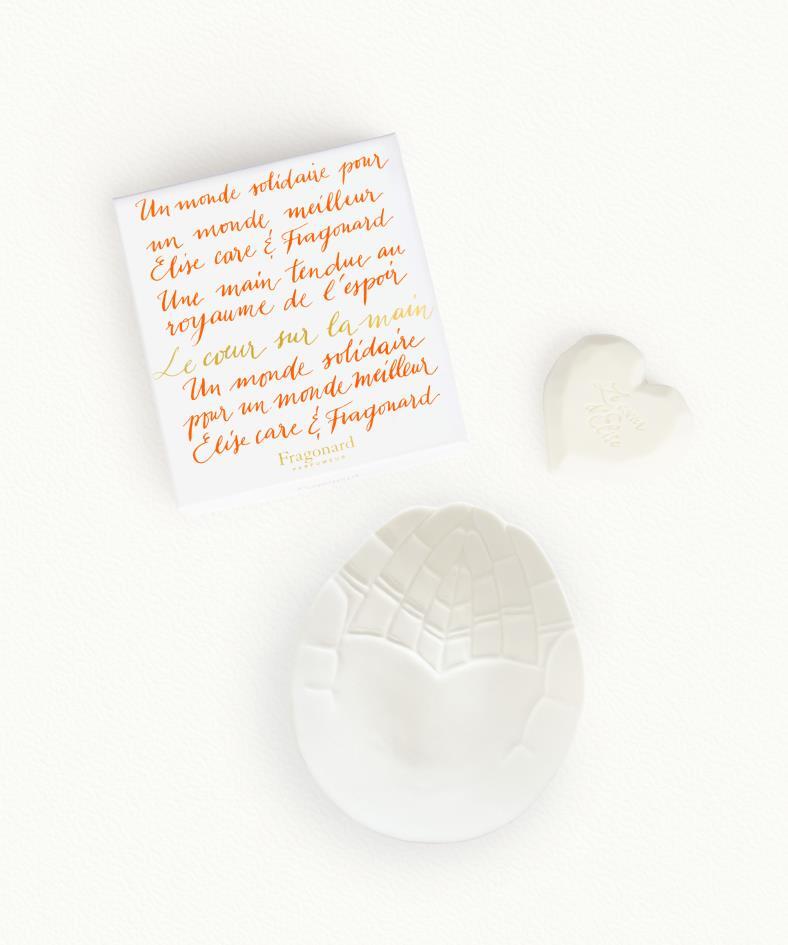 Un monde solidaire pour
un monde meilleur
Elise care & Fragonard
Une main tendue au
royaume de l'espoir
Le cœur sur la main
Un monde solidaire
pour un monde meilleur
Elise care & Fragonard
Fragonard
PARFUMEUR
d'Elise